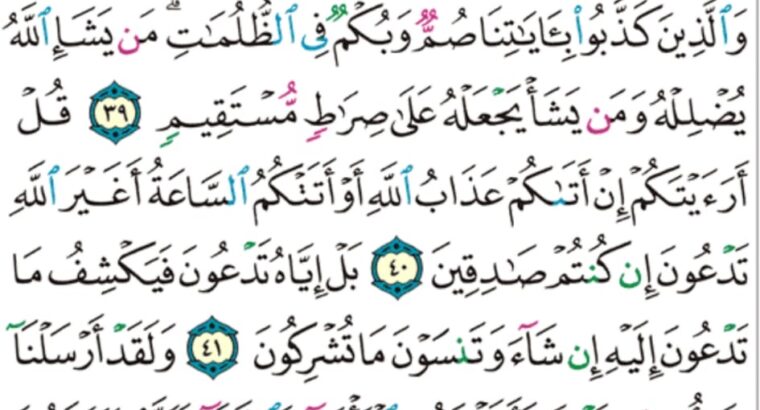 وَٱلَّذِينَ كَذَّبُوا۟ بِـَٔايَـٰتِنَا صُمٌّ وَبُكْمٌ فِى ٱلظُّلُمَـٰتِ ۗ مَن يَشَإِ ٱللَّهُ
يُضْلِلْهُ وَمَن يَشَأْ يَجْعَلْهُ عَلَىٰ صِرَٰطٍ مُّسْتَقِيمٍ ٣٩ قُلْ
أَرَءَيْتَكُمْ إِنْ أَتَىٰكُمْ عَذَابُ ٱللَّهِ أَوْ أَتَتْكُمُ ٱلسَّاعَةُ أَغَيْرَ ٱللَّهِ
تَدْعُونَ إِن كُنتُمْ صَـٰدِقِينَ ٤٠ بَلْ إِيَّاهُ تَدْعُونَ فَيَكْشِفُ مَا
تَدْعُونَ إِلَيْهِ إِن شَآءَ وَتَنسَوْنَ مَا تُشْرِكُونَ ٤١ وَلَقَدْ أَرْسَلْنَآ